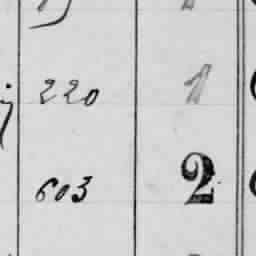 220 1
603 2